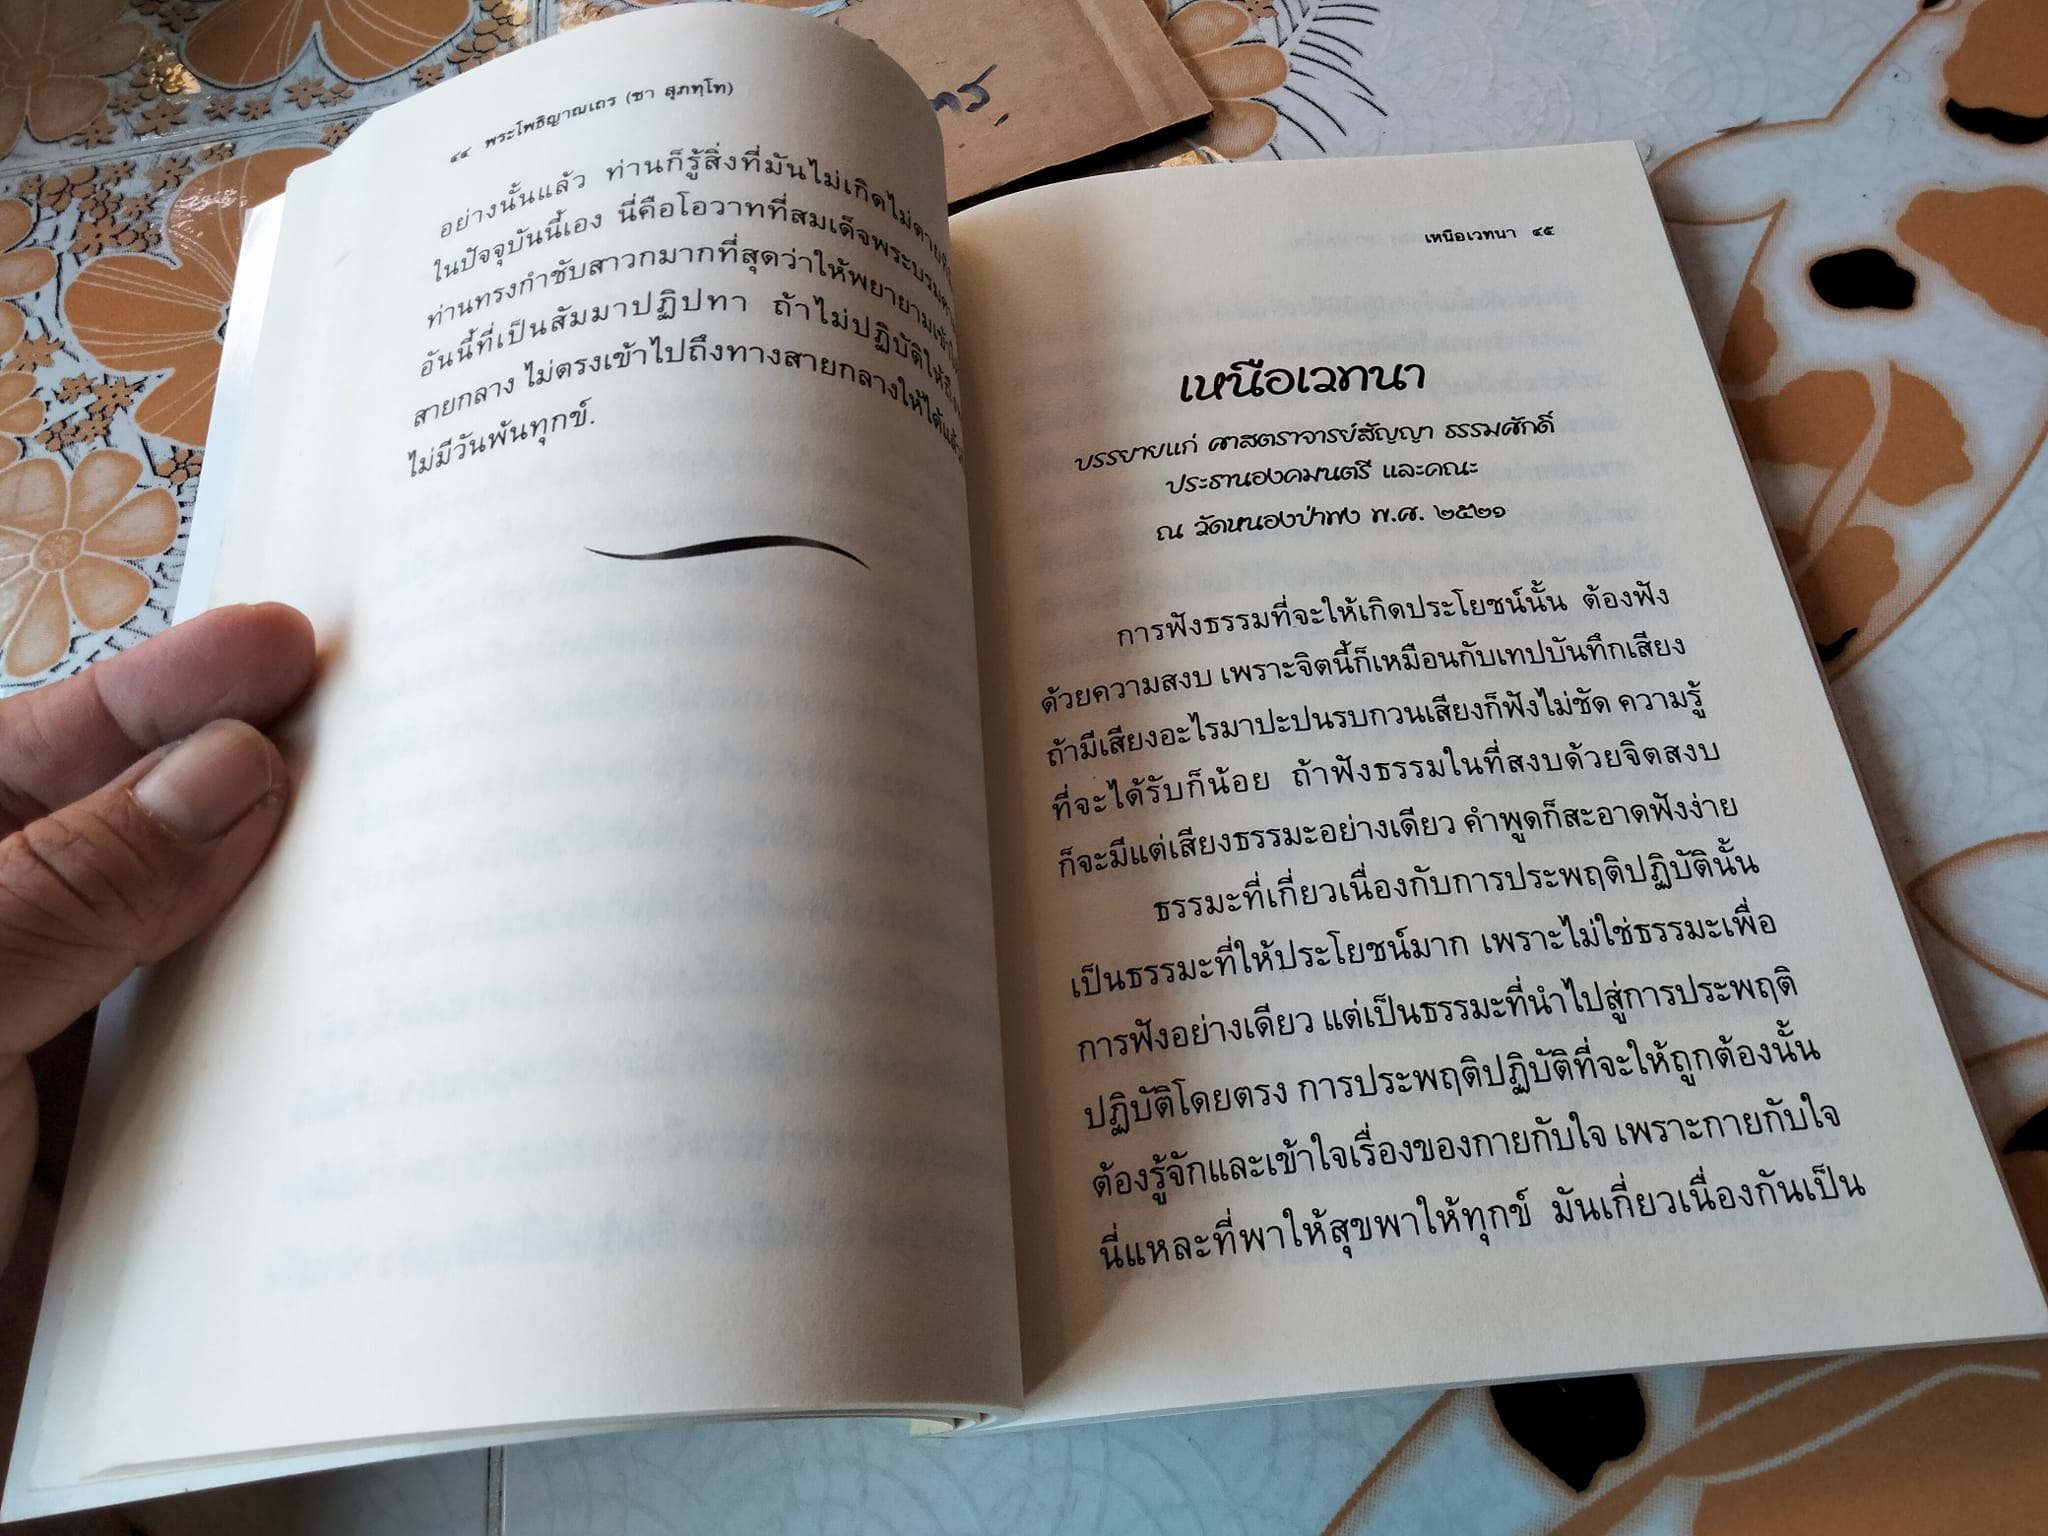 ๔๔ พระโพธิญาณเถร (ชา สุภทฺโท)
อย่างนั้นแล้ว ท่านก็รู้สิ่งที่มันไม่เกิดไม่ตาย
ในปัจจุบันนี้เอง นี่คือโอวาทที่สมเด็จพระบรม
ท่านทรงกำชับสาวกมากที่สุดว่าให้พยายามเข้า
อันนี้ที่เป็นสัมมาปฏิปทา ถ้าไม่ปฏิบัติให้ถึง
สายกลาง ไม่ตรงเข้าไปถึงทางสายกลางให้ได้แล้ว
ไม่มีวันพ้นทุกข์.
เหนือเวทนา ๔๕
เหนือเวทนา
บรรยายแก่ ศาสตราจารย์สัญญา ธรรมศักดิ์
ประธานองคมนตรี และคณะ
ณ วัดหนองป่าพง พ.ศ. ๒๕๒๑
การฟังธรรมที่จะให้เกิดประโยชน์นั้น ต้องฟัง
ด้วยความสงบ เพราะจิตนี้ก็เหมือนกับเทปบันทึกเสียง
ถ้ามีเสียงอะไรมาปะปนรบกวนเสียงก็ฟังไม่ชัด ความรู้
ที่จะได้รับก็น้อย ถ้าฟังธรรมในที่สงบด้วยจิตสงบ
ก็จะมีแต่เสียงธรรมะอย่างเดียว คำพูดก็สะอาดฟังง่าย
ธรรมะที่เกี่ยวเนื่องกับการประพฤติปฏิบัตินั้น
เป็นธรรมะที่ให้ประโยชน์มาก เพราะไม่ใช่ธรรมะเพื่อ
การฟังอย่างเดียว แต่เป็นธรรมะที่นำไปสู่การประพฤติ
ปฏิบัติโดยตรง การประพฤติปฏิบัติที่จะให้ถูกต้องนั้น
ต้องรู้จักและเข้าใจเรื่องของกายกับใจ เพราะกายกับใจ
นี่แหละที่พาให้สุขพาให้ทุกข์ มันเกี่ยวเนื่องกันเป็น